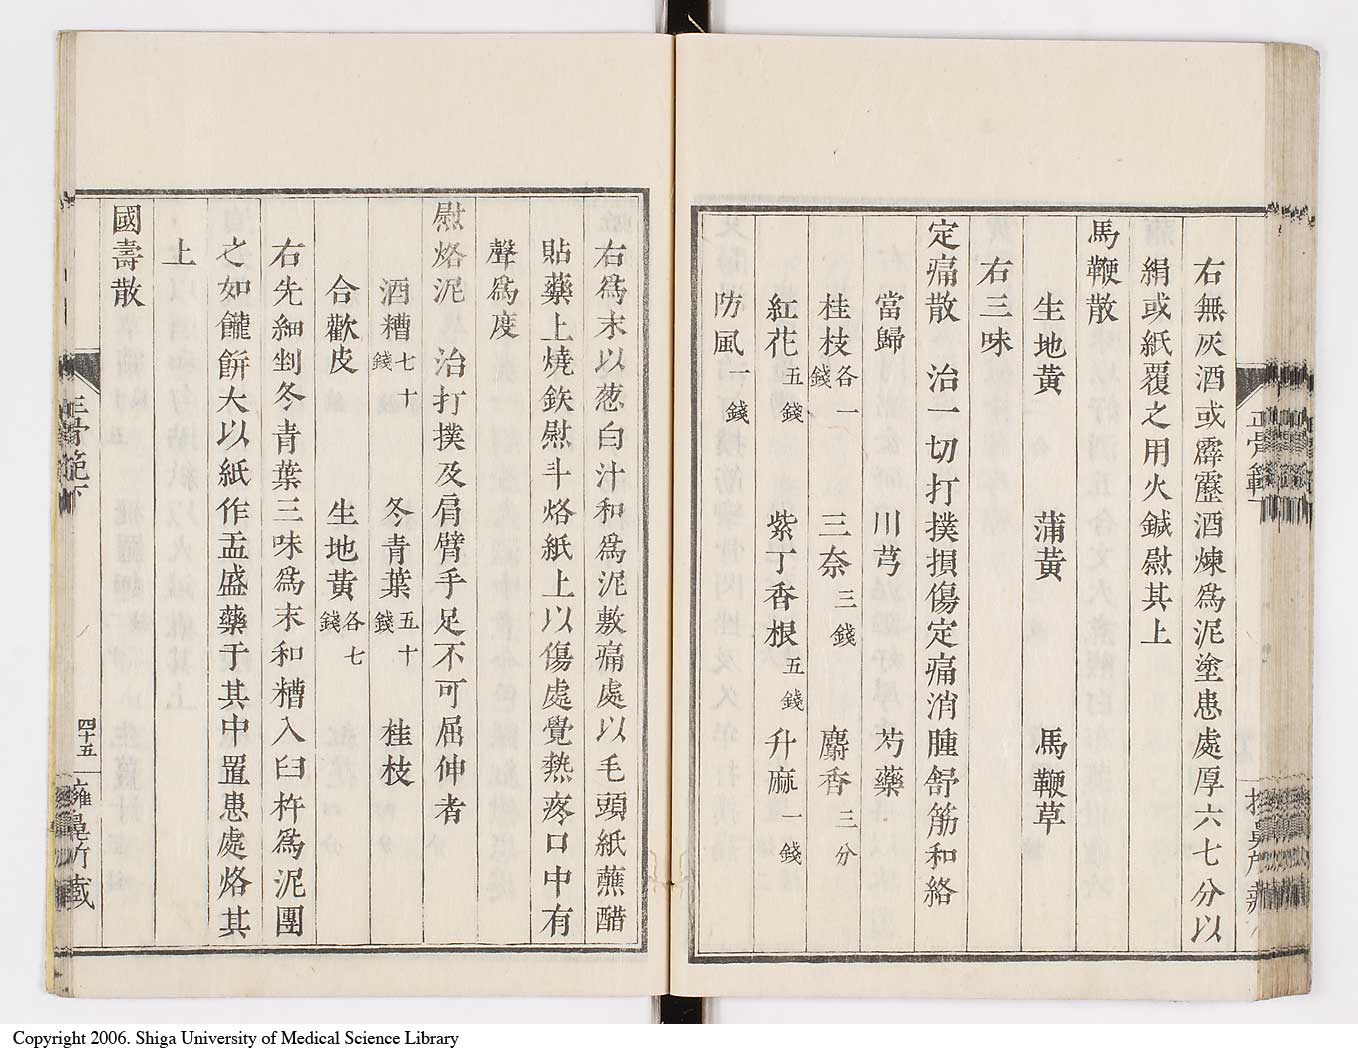 右無灰酒或霹靂酒煉爲泥塗患處厚六七分以
絹或紙覆之用火鍼熨其上
馬鞭散
生地黃 蒲黃 馬鞭草
右三味
定痛散 治一切打撲損傷定痛消腫舒筋和絡
當歸 川芎 芍藥
桂枝各一錢 三奈三錢 麝香三分
紅花五錢 紫丁香根五錢 升麻一錢
防風一錢
右爲末以葱白汁和爲泥敷痛處以毛頭紙蘸醋
貼藥上燒鉃熨斗烙紙上以傷處覺熱疼口中有
聲爲度
熨烙泥 治打撲及肩臂手足不可屈伸者
酒糟七十錢 冬青葉五十錢 桂枝
合歡皮 生地黃各七錢
右先細剉冬青葉三味爲末和糟入臼杵爲泥團
之如饠餠大以紙作盂盛藥于其中置患處烙其
上
國壽散
正骨範下
四十五
擁鼻所藏
正骨範